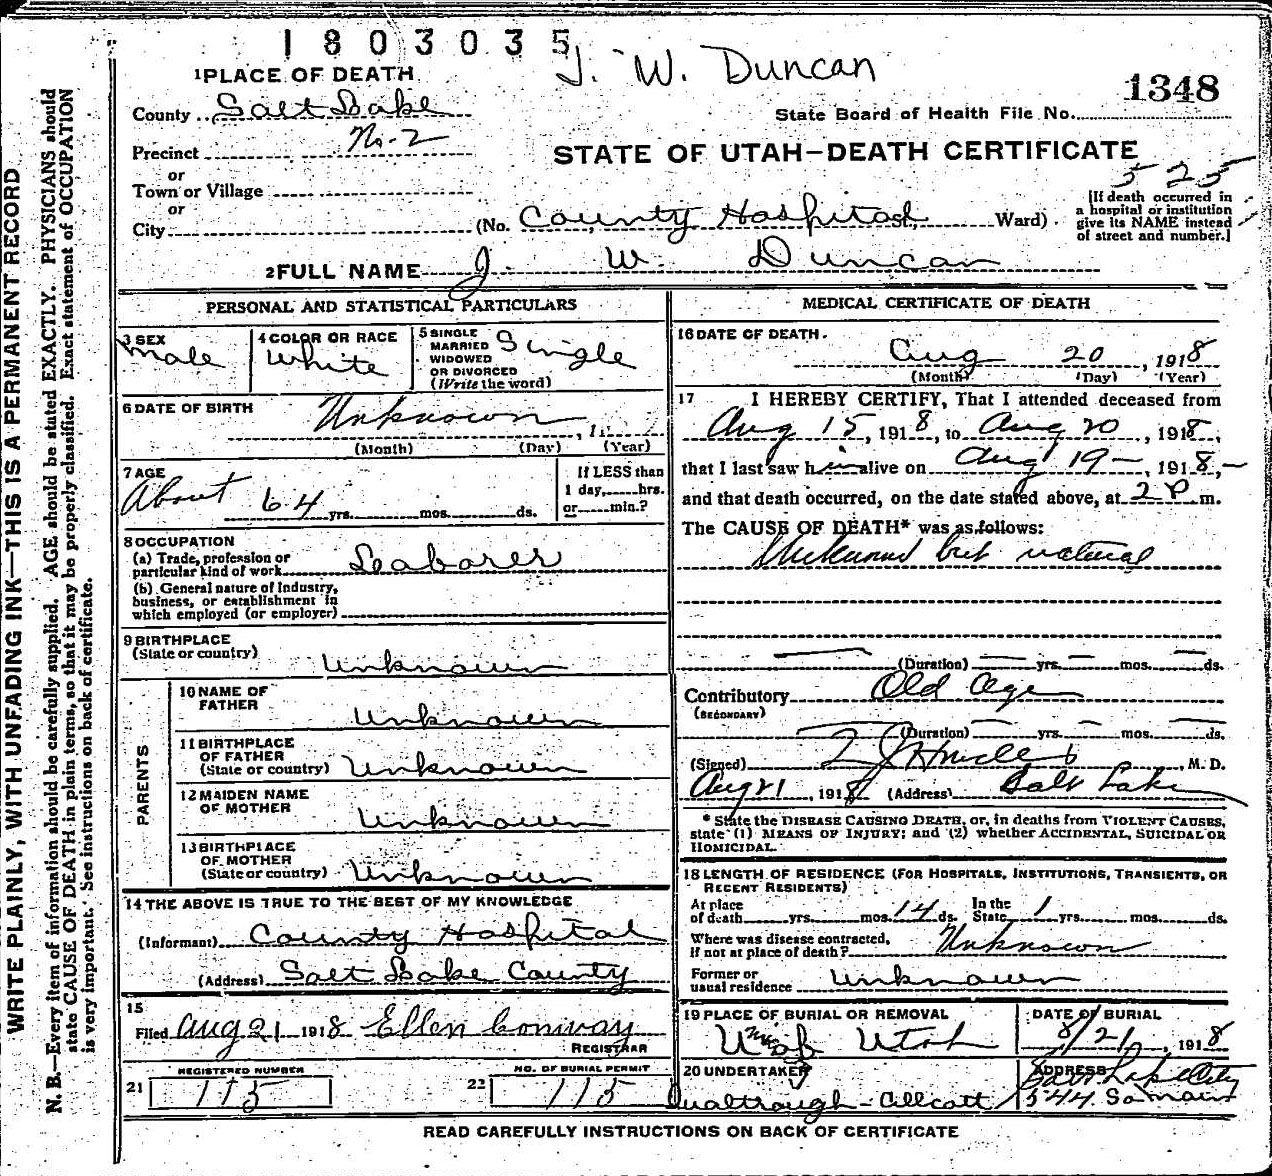 1803035
J. W. Duncan
1348
State Board of Health File No.
1 PLACE OF DEATH
County Salt Lake
Precinct No-2
or
Town or Village
or
City
STATE OF UTAH—DEATH CERTIFICATE
525
(No. County Hospital, Ward)
[If death occurred in
a hospital or institution
give its NAME instead
of street and number.]
2 FULL NAME J. W. Duncan
PERSONAL AND STATISTICAL PARTICULARS
3 SEX
Male
4 COLOR OR RACE
White
5 SINGLE
MARRIED
WIDOWED
OR DIVORCED
(Write the word)
Single
6 DATE OF BIRTH
Unknown, 1
(Month) (Day) (Year)
7 AGE
About 64 yrs. mos. ds.
If LESS than
1 day, hrs.
or min.?
8 OCCUPATION
(a) Trade, profession or
particular kind of work Laborer
(b) General nature of Industry,
business, or establishment in
which employed (or employer)
9 BIRTHPLACE
(State or country)
Unknown
PARENTS
10 NAME OF
FATHER
Unknown
11 BIRTHPLACE
OF FATHER
(State or country) Unknown
12 MAIDEN NAME
OF MOTHER
Unknown
13 BIRTHPLACE
OF MOTHER
(State or country) Unknown
14 THE ABOVE IS TRUE TO THE BEST OF MY KNOWLEDGE
(Informant) County Hospital
(Address) Salt Lake County
15
Filed Aug 21 1918 Ellen Conway
REGISTRAR
REGISTERED NUMBER
21 115
NO. OF BURIAL PERMIT
22 115
MEDICAL CERTIFICATE OF DEATH
16 DATE OF DEATH.
Aug 20, 1918
(Month) (Day) (Year)
17 I HEREBY CERTIFY, That I attended deceased from
Aug 15, 1918, to Aug 20, 1918,
that I last saw him alive on Aug 19—, 1918,—
and that death occurred, on the date stated above, at 2 P m.
The CAUSE OF DEATH* was as follows:
Unknown but natural
(Duration) yrs. mos. ds.
Contributory Old Age
(SECONDARY)
(Duration) yrs. mos. ds.
(Signed) , M. D.
Aug 21, 1918 (Address) Salt Lake
* State the DISEASE CAUSING DEATH, or, in deaths from VIOLENT CAUSES,
state (1) MEANS OF INJURY; and (2) whether ACCIDENTAL, SUICIDAL OR
HOMICIDAL.
18 LENGTH OF RESIDENCE (FOR HOSPITALS, INSTITUTIONS, TRANSIENTS, OR
RECENT RESIDENTS)
At place
of death yrs. mos. 14 ds.
In the
State 1 yrs. mos. ds.
Where was disease contracted,
If not at place of death? Unknown
Former or
usual residence Unknown
19 PLACE OF BURIAL OR REMOVAL
Univ of Utah
DATE OF BURIAL
8/21, 1918
20 UNDERTAKER
Qualtrough-Allcott
ADDRESS
Salt Lake City
544 So Main
READ CAREFULLY INSTRUCTIONS ON BACK OF CERTIFICATE
WRITE PLAINLY, WITH UNFADING INK—THIS IS A PERMANENT RECORD
N. B.—Every item of information should be carefully supplied. AGE should be stated EXACTLY. PHYSICIANS should
state CAUSE OF DEATH in plain terms, so that it may be properly classified. Exact statement of OCCUPATION
is very important. See instructions on back of certificate.